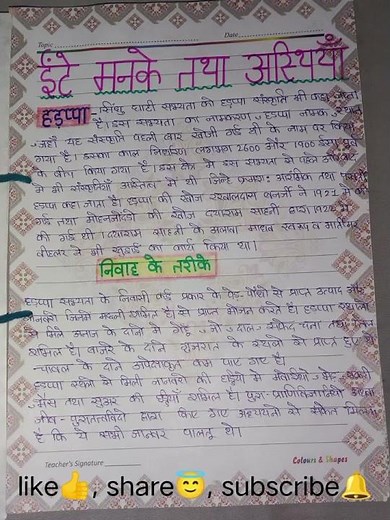 Topic Date
ईंटे मनके तथा अस्थियाँ
हड़प्पा सिंधु घाटी सभ्यता को हड़प्पा संस्कृति भी कहा जाता
है। इस सभ्यता का नामकरण, हड़प्पा नामक स्थान
जहाँ यह संस्कृति पहली बार खोजी गई थी के नाम पर किया
गया है। इसका काल निर्धारण लगभग 2600 और 1900 ईसा पूर्व
के बीच किया गया है। इस क्षेत्र में इस सभ्यता से पहले और बाद
में भी संस्कृतियाँ अस्तित्व में थी जिन्हें क्रमशः आरंभिक तथा परवर्ती
हड़प्पा कहा जाता है। हड़प्पा की खोज
गई तथा मोहनजोदड़ो की खोज दयाराम साहनी द्वारा
की गई थी। दयाराम साहनी के अलावा माधव स्वरूप व मार्टिमर
व्हीलर ने भी खुदाई का कार्य किया था।
निर्वाह के तरीके
हड़प्पा सभ्यता के निवासी कई प्रकार के पेड़-पौधों से प्राप्त उत्पाद और
जानवरों जिनमें मछली शामिल है। से प्राप्त भोजन करते हैं। हड़प्पा स्थलों
से मिले अनाज के दानों में गेहूँ, जौ, दाल, सफेद चना तथा तिल
शामिल हैं। बाजरे के दाने गुजरात के स्थलों से प्राप्त हुए थे
चावल के दाने अपेक्षाकृत कम पाए गए हैं।
हड़प्पा स्थलों से मिली जानवरों की हड्डियों में मवेशियों, भेड़, बकरी
भैंस तथा सूअर की हड्डियाँ शामिल हैं। पुरा-प्राणिविज्ञानियों अथवा
जीव-पुरातत्वविदों द्वारा किए गए अध्ययनों से संकेत मिलता
है कि ये सभी जानवर पालतू थे।
Teacher's Signature Colours & Shapes
like👍, share😇, subscribe🔔